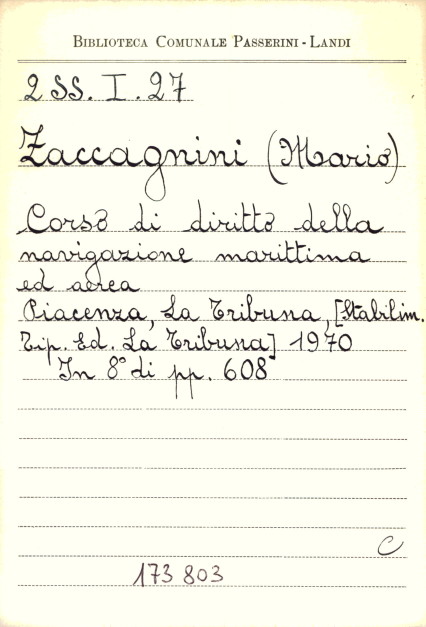 BIBLIOTECA COMUNALE PASSERINI - LANDI
2 SS. I. 27
Zaccagnini (Mario)
Corso di diritto della
navigazione marittima
ed aerea
Piacenza, La Tribuna, [Stabilim.
Tip. Ed. La Tribuna] 1970
In 8° di pp. 608
C
173 803